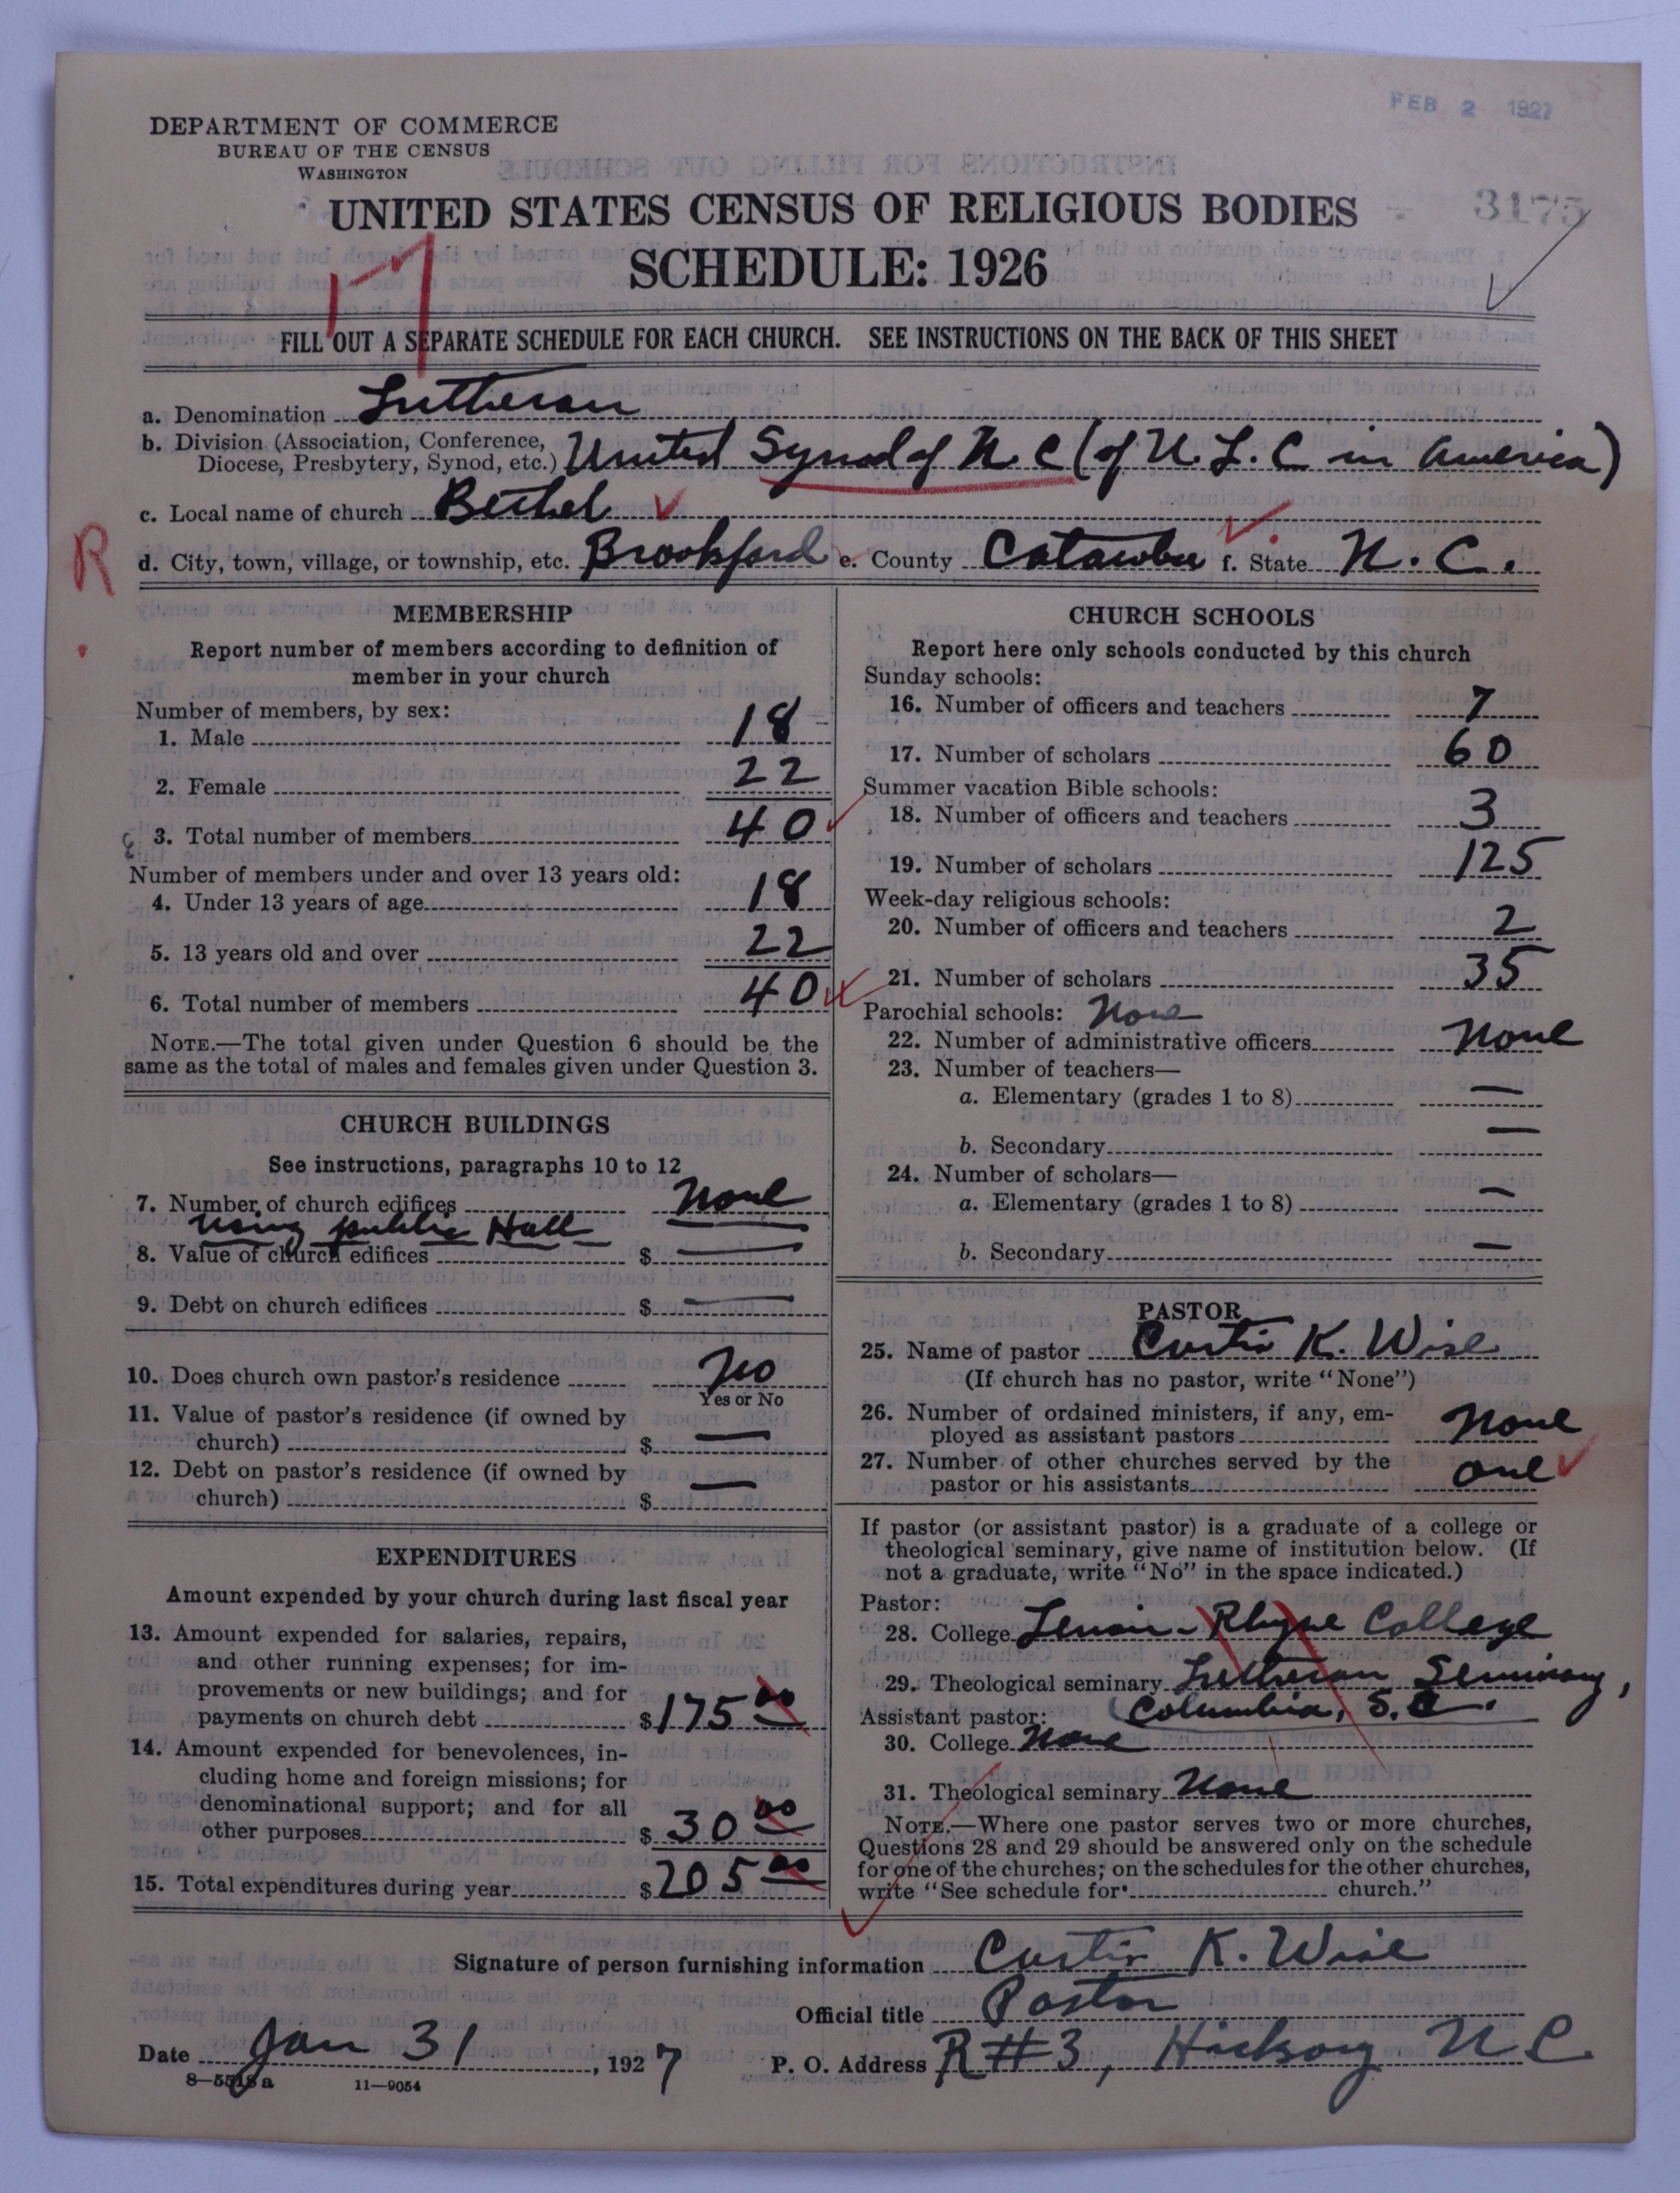 FEB 2 1927
DEPARTMENT OF COMMERCE
BUREAU OF THE CENSUS
WASHINGTON
UNITED STATES CENSUS OF RELIGIOUS BODIES
3175
SCHEDULE: 1926
FILL OUT A SEPARATE SCHEDULE FOR EACH CHURCH. SEE INSTRUCTIONS ON THE BACK OF THIS SHEET
a. Denomination Lutheran
b. Division (Association, Conference, Diocese, Presbytery, Synod, etc.) United Synod of N.C (of U.L.C in America)
c. Local name of church Bethel
R
d. City, town, village, or township, etc. Brookford e. County Catawba f. State N.C.
MEMBERSHIP
Report number of members according to definition of
member in your church
Number of members, by sex:
1. Male 18
2. Female 22
3. Total number of members 40
Number of members under and over 13 years old:
4. Under 13 years of age 18
5. 13 years old and over 22
6. Total number of members 40
NOTE.—The total given under Question 6 should be the
same as the total of males and females given under Question 3.
CHURCH BUILDINGS
See instructions, paragraphs 10 to 12
7. Number of church edifices None
Using public Hall
8. Value of church edifices $ —
9. Debt on church edifices $ —
10. Does church own pastor's residence No
Yes or No
11. Value of pastor's residence (if owned by
church) $ —
12. Debt on pastor's residence (if owned by
church) $ —
EXPENDITURES
Amount expended by your church during last fiscal year
13. Amount expended for salaries, repairs,
and other running expenses; for im-
provements or new buildings; and for
payments on church debt $175 00
14. Amount expended for benevolences, in-
cluding home and foreign missions; for
denominational support; and for all
other purposes $ 30 00
15. Total expenditures during year $205 00
CHURCH SCHOOLS
Report here only schools conducted by this church
Sunday schools:
16. Number of officers and teachers 7
17. Number of scholars 60
Summer vacation Bible schools:
18. Number of officers and teachers 3
19. Number of scholars 125
Week-day religious schools:
20. Number of officers and teachers 2
21. Number of scholars 35
Parochial schools: None
22. Number of administrative officers None
23. Number of teachers—
a. Elementary (grades 1 to 8) —
b. Secondary —
24. Number of scholars—
a. Elementary (grades 1 to 8) —
b. Secondary —
PASTOR
25. Name of pastor Curtis K. Wise
(If church has no pastor, write "None")
26. Number of ordained ministers, if any, em-
ployed as assistant pastors None
27. Number of other churches served by the
pastor or his assistants one
If pastor (or assistant pastor) is a graduate of a college or
theological seminary, give name of institution below. (If
not a graduate, write "No" in the space indicated.)
Pastor:
28. College Lenoir-Rhyne College
29. Theological seminary Lutheran Seminary,
Assistant pastor: Columbia, S.C.
30. College None
31. Theological seminary None
NOTE.—Where one pastor serves two or more churches,
Questions 28 and 29 should be answered only on the schedule
for one of the churches; on the schedules for the other churches,
write "See schedule for church."
Signature of person furnishing information Curtis K. Wise
Official title Pastor
Date Jan 31, 1927 P. O. Address R#3, Hickory N C
8—5518a 11—9054